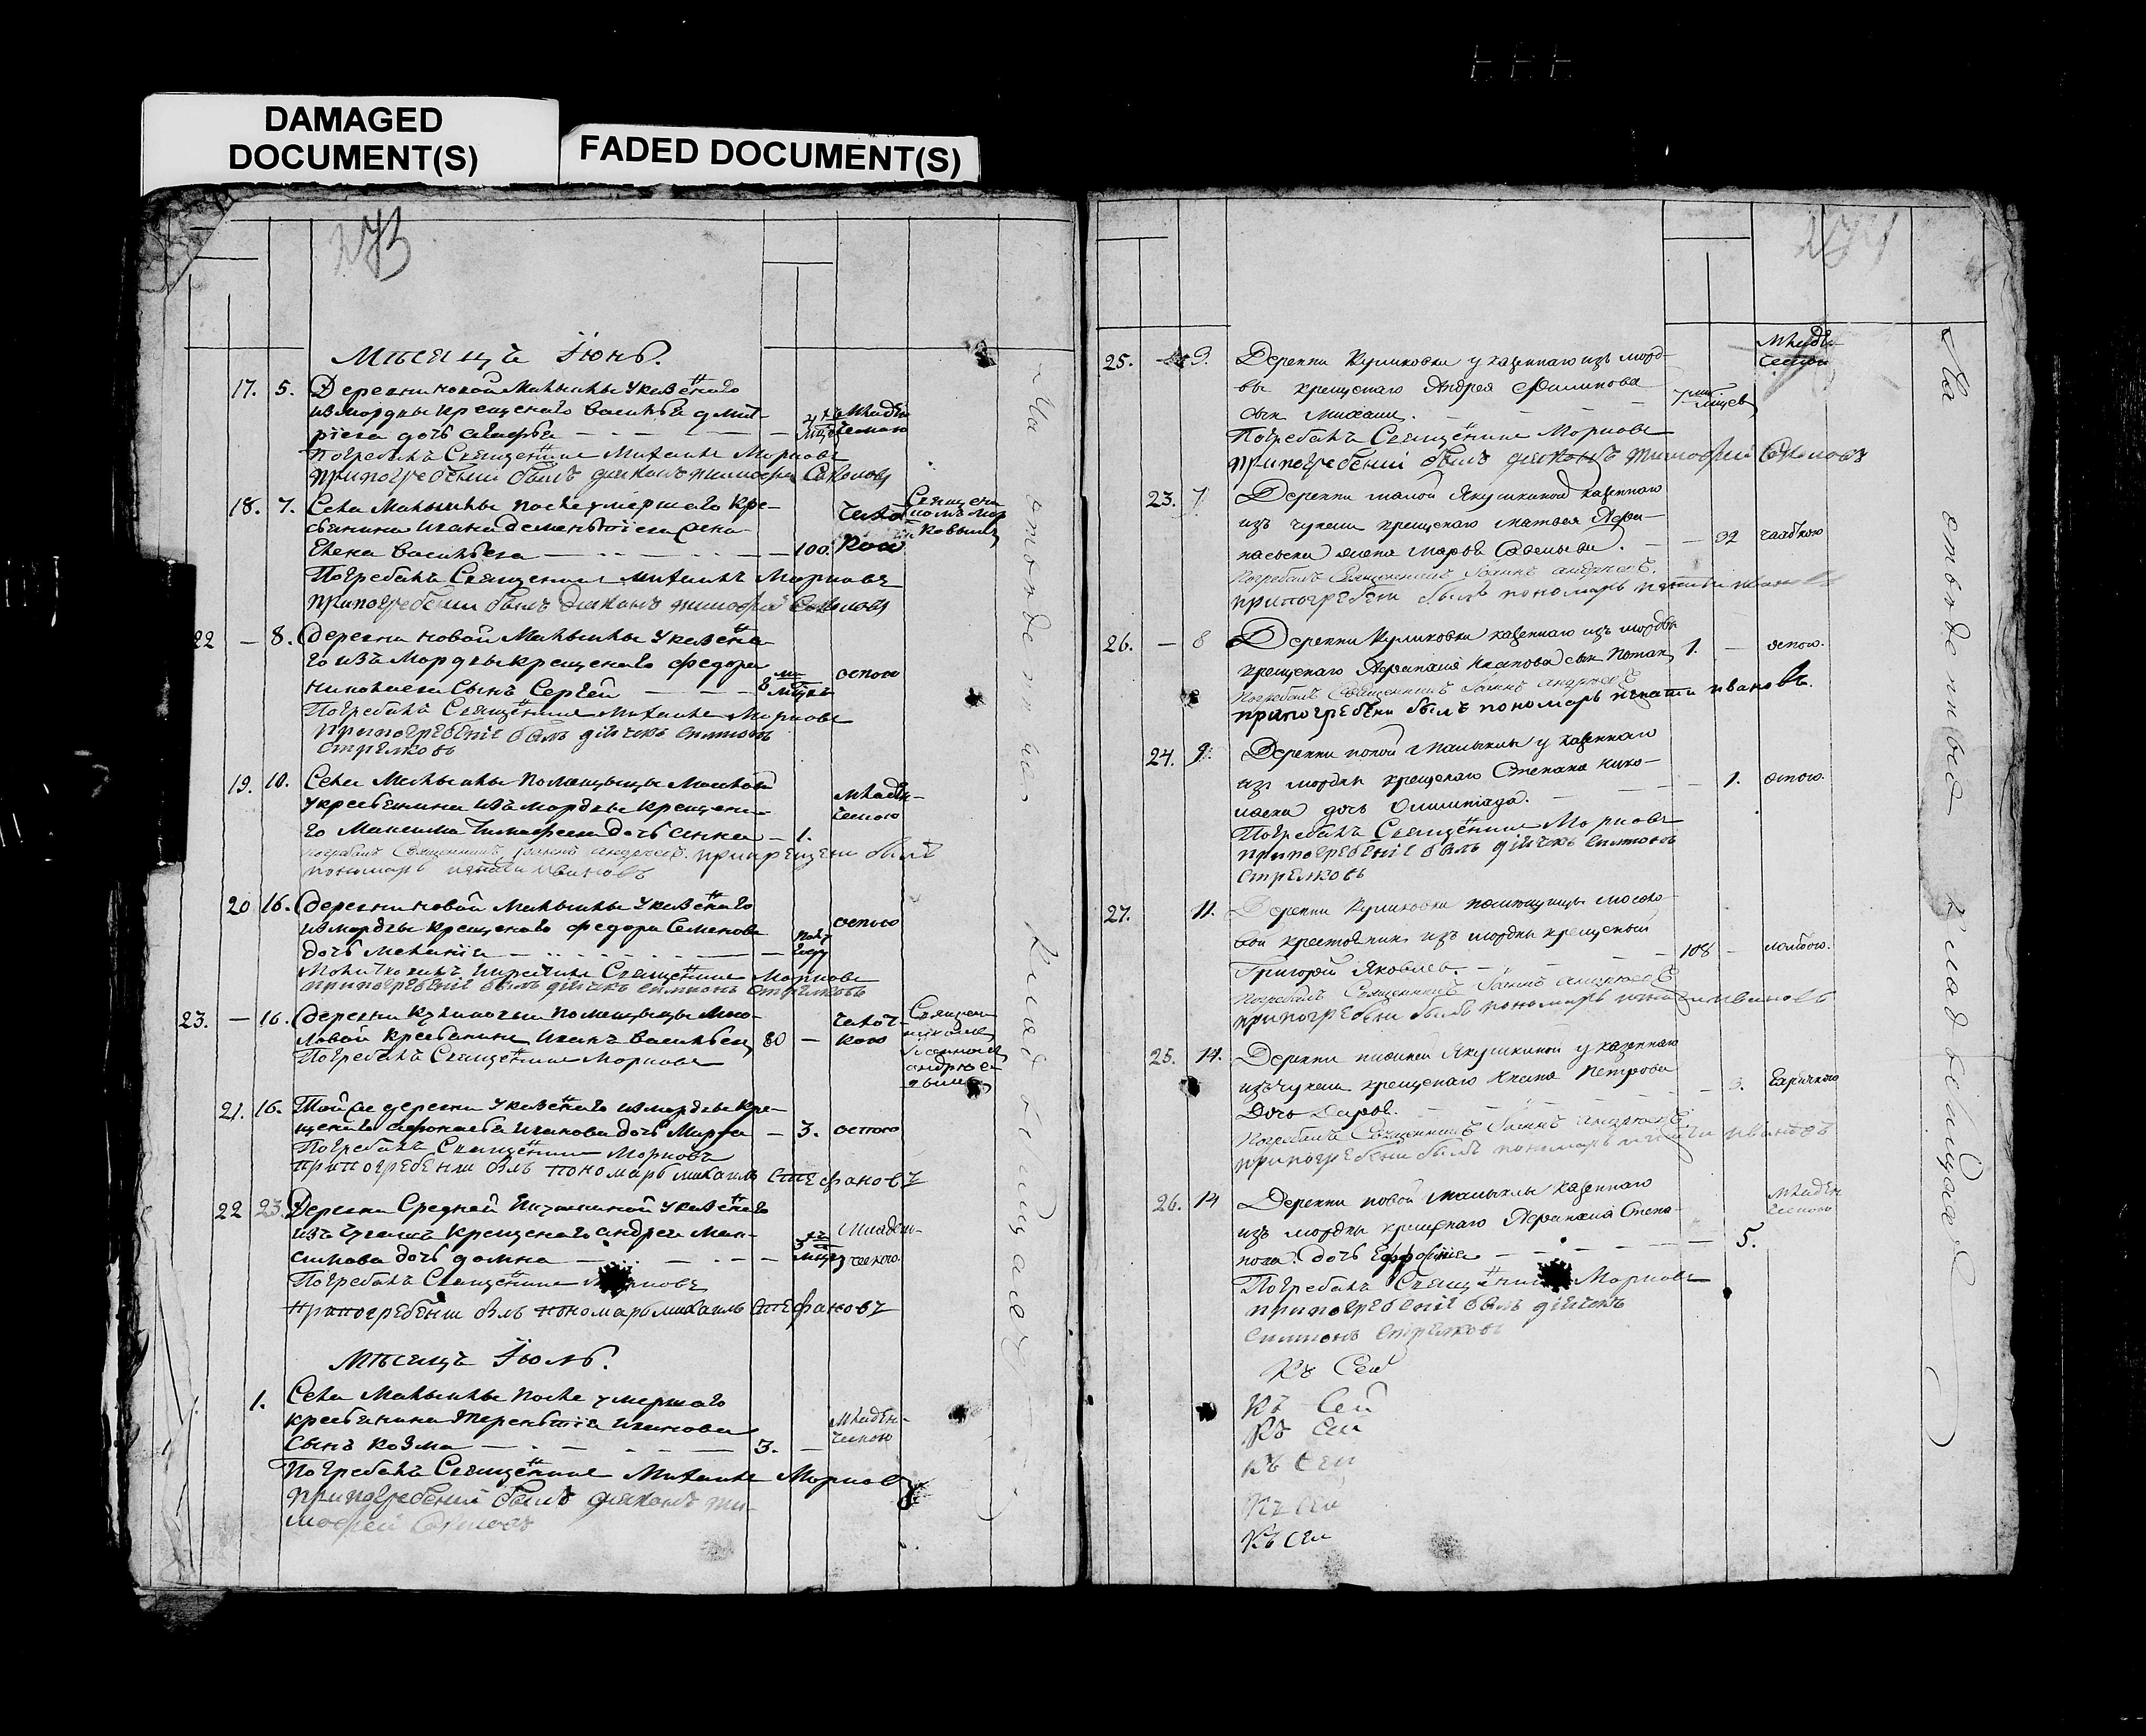 DAMAGED
DOCUMENT(S)
FADED DOCUMENT(S)
273
Мѣсяцъ Іюнь.
17. 5. Деревни новой Малыклы указеннаго
из мордвы крещенаго Василья Дмит-
рїева дочь Агафья — 4 мцъ младен
ческою
Погребалъ Священникъ Михаилъ Морновъ
при погребении былъ дияконъ тимофей Соколовъ
18. 7. Села Малыклы после умершаго кре-
стьянина Ивана Дементїева жена
Елена Васильева — 100. чахоткою
Погребалъ Священникъ Михаилъ Морновъ
при погребении былъ дияконъ тимофей Соколовъ
22 — 8. Деревни новой Малыклы указенна-
го изъ мордвы крещенаго Федора
Николаева сынъ Сергей — 8 мцъ оспою
Погребалъ Священникъ Михаилъ Морновъ
при погребенiе былъ дiячокъ симионъ
стрелковъ
19. 10. Села Малыклы помещицы
у крестьянина изъ мордвы крещена-
го Максима Тимофеева дочь Анна — 1. младен-
ческою
погребалъ Священникъ Iоаннъ андреевъ. при крещени былъ
пономарь игнати ивановъ
20 16. Деревни новой Малыклы указеннаго
из мордвы крещенаго Федора Семенова
дочь Меланїя — полугоду оспою
Священникъ Морновъ
при погребенiе былъ дiячокъ симионъ стрелковъ
23. — 16. Деревни Куликовки помещицы Мосо-
ловой крестьянинъ Иванъ Васильевъ 80 — чахот-
кою
Погребалъ Священникъ Морновъ
21. 16. Той же деревни указеннаго из мордвы кре-
щенаго Афонасья Иванова дочь Марфа — 3. оспою
Погребалъ Священникъ Морновъ
при погребении былъ пономарь михаилъ стефановъ
22 23. Деревни Средней Якушкиной указеннаго
изъ чувашъ крещенаго Андрея Мак-
симова дочь Домна — 3 мцъ младен-
ческою
Погребалъ Священникъ Морновъ
при погребении былъ пономарь михаилъ стефановъ
Мѣсяцъ Iюль.
1. Села Малыклы после умершаго
крестьянина Терентїя Иванова
сынъ Козма — 3. — младен-
ческою
Погребалъ Священникъ Михаилъ Морновъ
при погребении былъ дияконъ ти-
мофей Соколовъ
274
25. 3. Деревни Куликовки у казеннаго изъ морд-
вы крещенаго Андрея Филипова
сын Михаил. — 7 мцев младен-
ческою
Погребалъ Священникъ Морновъ
при погребении былъ дияконъ тимофей Соколовъ
23. 7 Деревни малой Якушкиной казеннаго
изъ чуваш крещенаго Матвея Афа-
насьева жена Марфа Савельева. — 92 слабкою
погребалъ Священникъ Iоаннъ андреевъ.
при погребени былъ пономарь игнати ивановъ
26. — 8 Деревни Куликовки казеннаго изъ мордвы
крещенаго Афанасия Иванова сын Потап 1. — оспою.
погребалъ Священникъ Iоаннъ андреевъ
при погребени былъ пономарь игнати ивановъ.
24. 9. Деревни новой Малыклы у казеннаго
из мордвы крещенаго Степана Нико-
лаева дочь Олимпiада. — 1. оспою.
Погребалъ Священникъ Морновъ
при погребенiе былъ дiячокъ симионъ
стрелковъ
27. 11. Деревни Куликовки помещицы мосоло-
вой крестьянин изъ мордвы крещеный
Григорий Яковлев. — 108 —
погребалъ Священникъ Iоаннъ андреевъ
при погребени былъ пономарь игнати ивановъ
25. 14. Деревни нижней Якушкиной у казеннаго
изъ чуваш крещенаго Петрова
дочь Дарья. — 3. горячкою
погребалъ Священникъ Iоаннъ андреевъ
при погребени былъ пономарь игнати ивановъ
26. 14 Деревни новой Малыклы казеннаго
изъ мордвы крещенаго Афанасия Степа-
нова дочь Ефросинiя — 5. младен
ческою
Погребалъ Священникъ Морновъ
при погребенiе былъ дiячокъ
симионъ стрелковъ
Къ Сей
Къ Сей
Къ Сей
Къ Сей
Къ Сей
Къ Сей
На отведенное кладбище